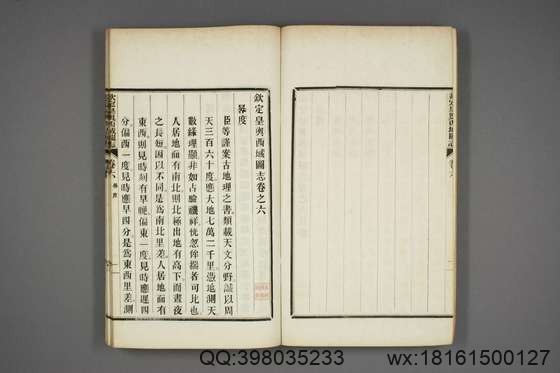 欽定皇輿西域圖志卷之六
晷度
臣等謹案古地理之書類載天文分野誠以周
天三百六十度應大地七萬二千里憑地測天
數緣理顯非如占驗禨祥恍忽侔揣者可比也
人居地面有南北則北極出地有高下而晝夜
之長短因以不同是爲南北里差人居地面有
東西則見時刻有早晚偏東一度見時應遲四
分偏西一度見時應早四分是爲東西里差測
欽定皇輿西域圖志
卷六
晷度
卷六
QQ:398035233
wx:18161500127